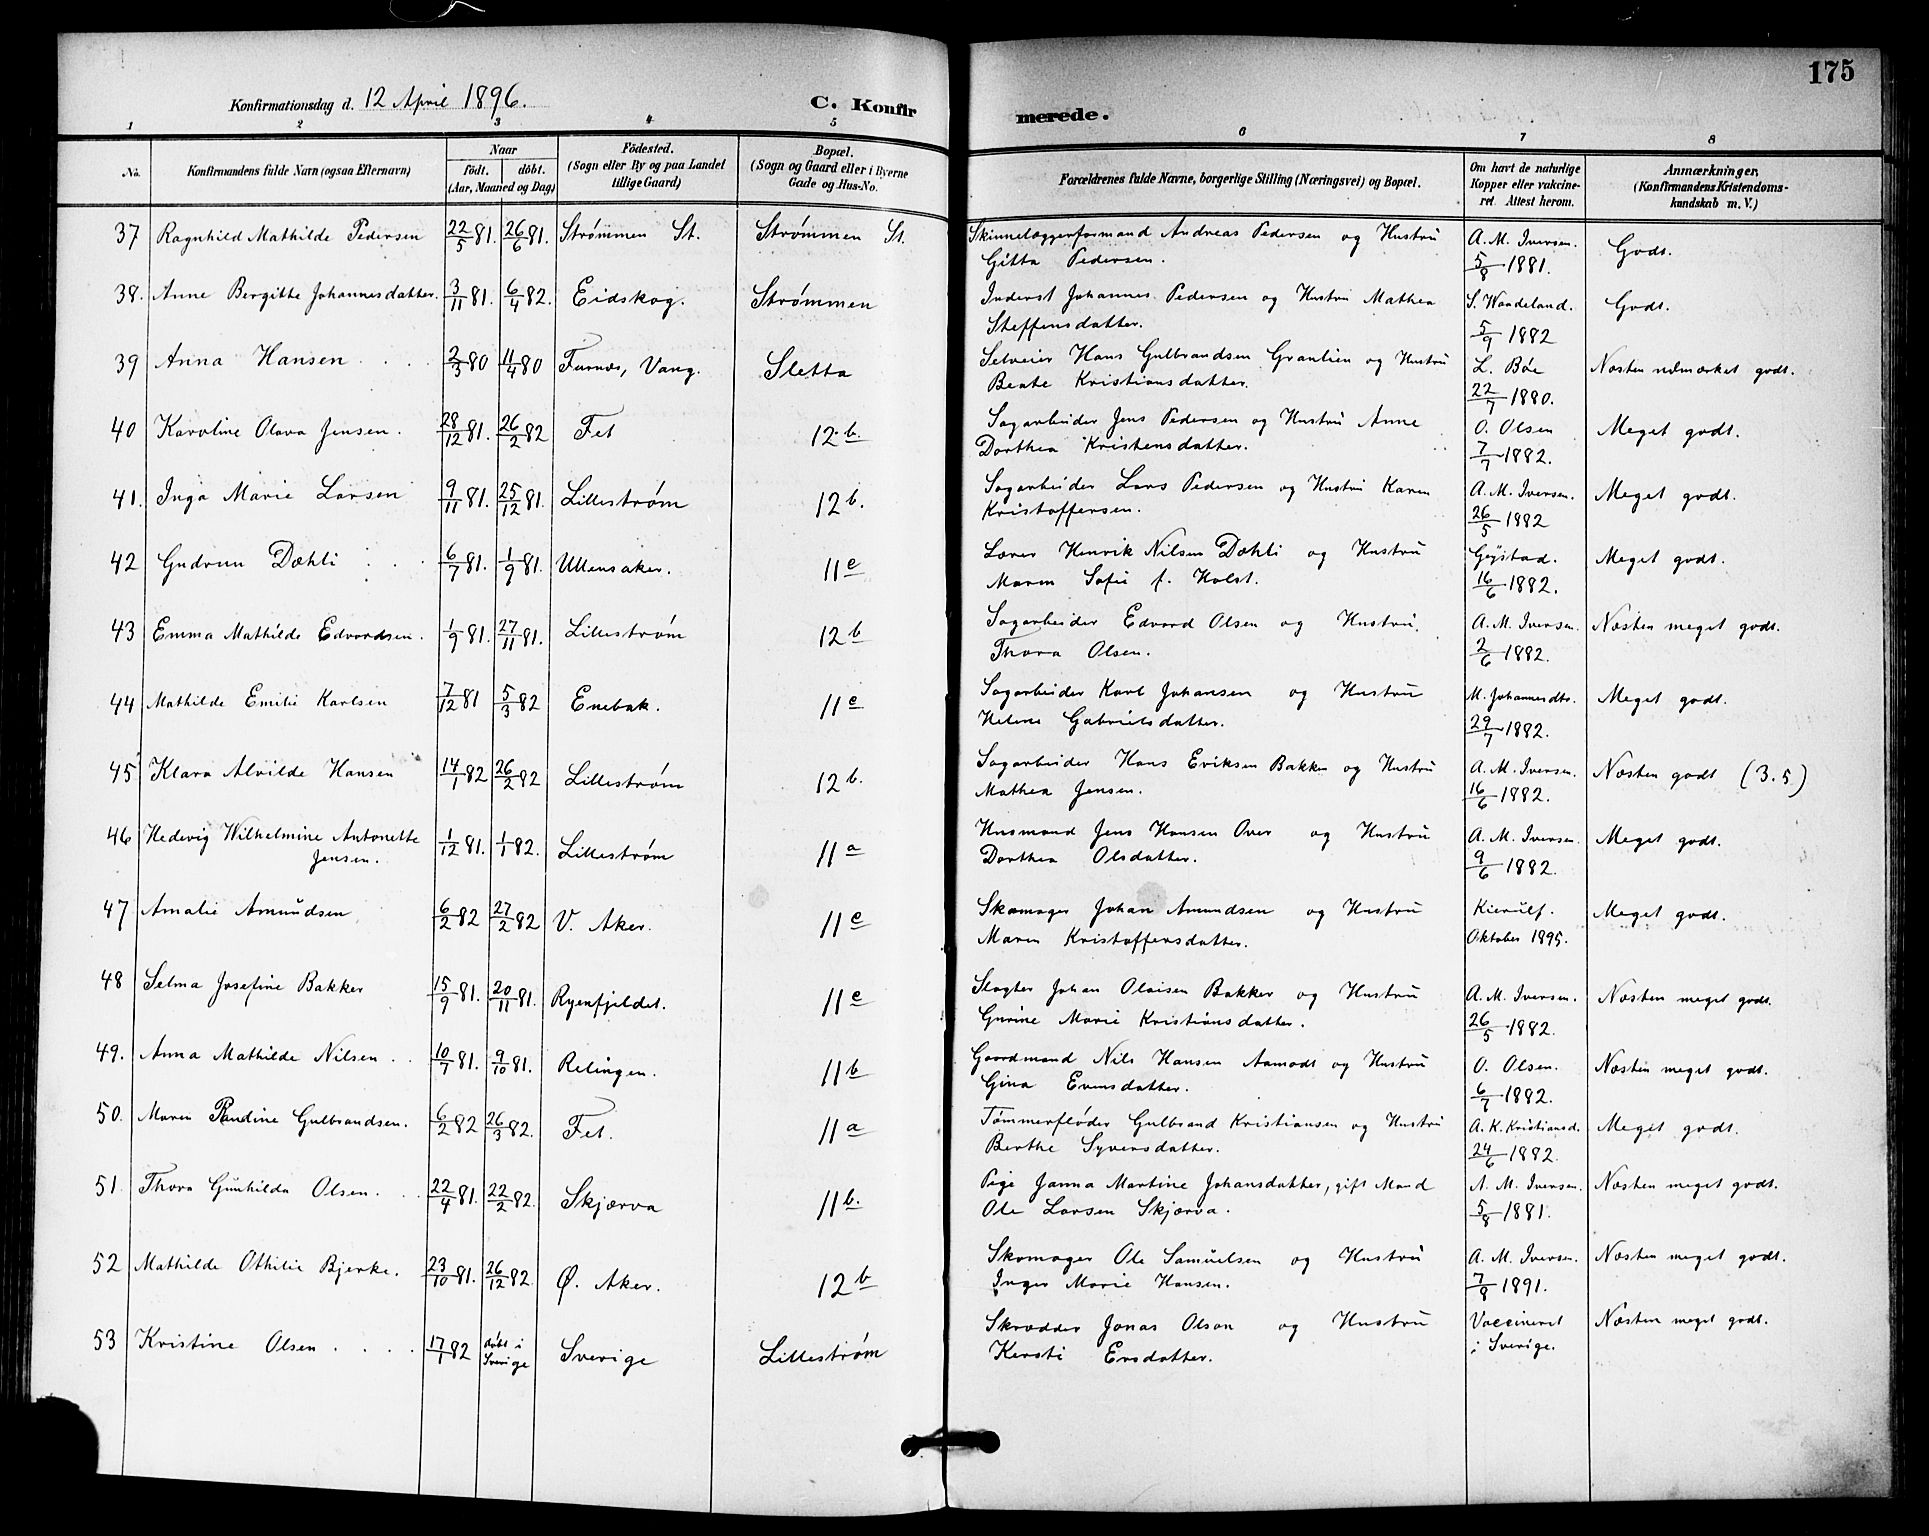 175
Konfirmationsdag d. 12 April 1896.
C. Konfir
merede.
1 2 3 4 5 6 7 8
No. Konfirmandens fulde Navn (ogsaa Efternavn) Naar født. døbt. (Aar, Maaned og Dag) Fødested. (Sogn eller By og paa Landet tillige Gaard) Bopæl. (Sogn og Gaard eller i Byerne Gade og Hus-No. Forældrenes fulde Navne, borgerlige Stilling (Næringsvei) og Bopæl. Om havt de naturlige Kopper eller vakcineret. Attest herom. Anmærkninger, (Konfirmandens Kristendomskundskab m. V.)
37 Ragnhild Mathilde Pedersen 22/5 81. 26/6 81. Strømmen St. Strømmen St. Skinnelæggerformand Andreas Pedersen og Hustru A. M. Iversen. Godt.
Gitta Pedersen. 5/8 1881.
38. Anne Bergitte Johannesdatter. 3/11 81. 6/4 82. Eidskog. Strømmen Inderst Johannes Pedersen og Hustru Mathea S. Waadeland. Godt.
Steffensdatter. 5/9 1882
39 Anna Hansen 2/3 80 11/4 80 Furnæs, Vang. Sletta Selveier Hans Gulbrandsen Granlien og Hustru L. Bøe Næsten udmærket godt.
Beate Kristiansdatter. 22/7 1880.
40 Karoline Olava Jensen. 28/12 81. 26/2 82 Fet 12 b. Sagarbeider Jens Pedersen og Hustru Anne O. Olsen Meget godt.
Dorthea Kristensdatter. 7/7 1882.
41. Inga Marie Larsen 9/11 81. 25/12 81. Lillestrøm 12 b. Sagarbeider Lars Pedersen og Hustru Karen A. M. Iversen. Meget godt.
Kristoffersen. 26/5 1882
42 Gudrun Dæhli 6/7 81. 1/9 81. Ullensaker. 11 e Lærer Henrik Nilsen Dæhli og Hustru Gystad. Meget godt.
Maren Sofie f. Holst. 16/6 1882.
43 Emma Mathilde Edvardsen. 1/9 81. 27/11 81. Lillestrøm 12 b Sagarbeider Edvard Olsen og Hustru. A. M. Iversen. Næsten meget godt.
Thora Olsen. 2/6 1882.
44 Mathilde Emilie Karlsen 7/12 81 5/3 82 Enebak. 11 e Sagarbeider Karl Johansen og Hustru M. Johannesdtr. Meget godt.
Helene Gabrielsdatter. 29/7 1882.
45 Klara Alvilde Hansen 14/1 82 26/2 82 Lillestrøm 12 b. Sagarbeider Hans Eriksen Bakken og Hustru A. M. Iversen. Næsten godt (3.5)
Mathea Jensen. 16/6 1882.
46 Hedevig Wilhelmine Antonette 1/12 81. 1/1 82. Lillestrøm 11 a Husmand Jens Hansen Over og Hustru A. M. Iversen. Meget godt.
Jensen. Dorthea Olsdatter. 9/6 1882.
47 Amalie Amundsen 6/2 82 27/2 82 V. Aker. 11 e Skomager Johan Amundsen og Hustru Kierulf. Meget godt.
Maren Kristoffersdatter. Oktober 1895.
48 Selma Josefine Bakker 15/9 81. 20/11 81. Ryenfjeldet. 11 e Slagter Johan Olaisen Bakker og Hustru A. M. Iversen. Næsten meget godt.
Gurine Marie Kristiansdatter. 26/5 1882.
49. Anna Mathilde Nilsen 10/7 81. 9/10 81. Relingen. 11 b Gaardmand Nils Hansen Aamodt og Hustru O. Olsen. Næsten meget godt.
Gina Evensdatter. 6/7 1882.
50. Maren Pauline Gulbrandsen. 6/2 82 26/3 82. Fet. 11 a Tømmerfløder Gulbrand Kristiansen og Hustru A. K. Kristiansd. Meget godt.
Berthe Syversdatter. 24/6 1882.
51. Thora Gunhilda Olsen. 22/4 81. 22/2 82. Skjærva 11 b. Pige Janna Martine Johansdatter, gift Mand A. M. Iversen. Næsten meget godt.
Ole Larsen Skjærva. 5/8 1881.
52 Mathilde Othilie Bjerke. 23/10 81. 26/12 82. Ø. Aker. 12 b Skomager Ole Samuelsen og Hustru A. M. Iversen. Næsten meget godt.
Inger Marie Hansen. 7/8 1891.
53 Kristine Olsen 17/1 82 døbt i Sverige Sverige Lillestrøm Skrædder Jonas Olson og Hustru Vaccineret Næsten meget godt.
Kersti Ersdatter. i Sverige.